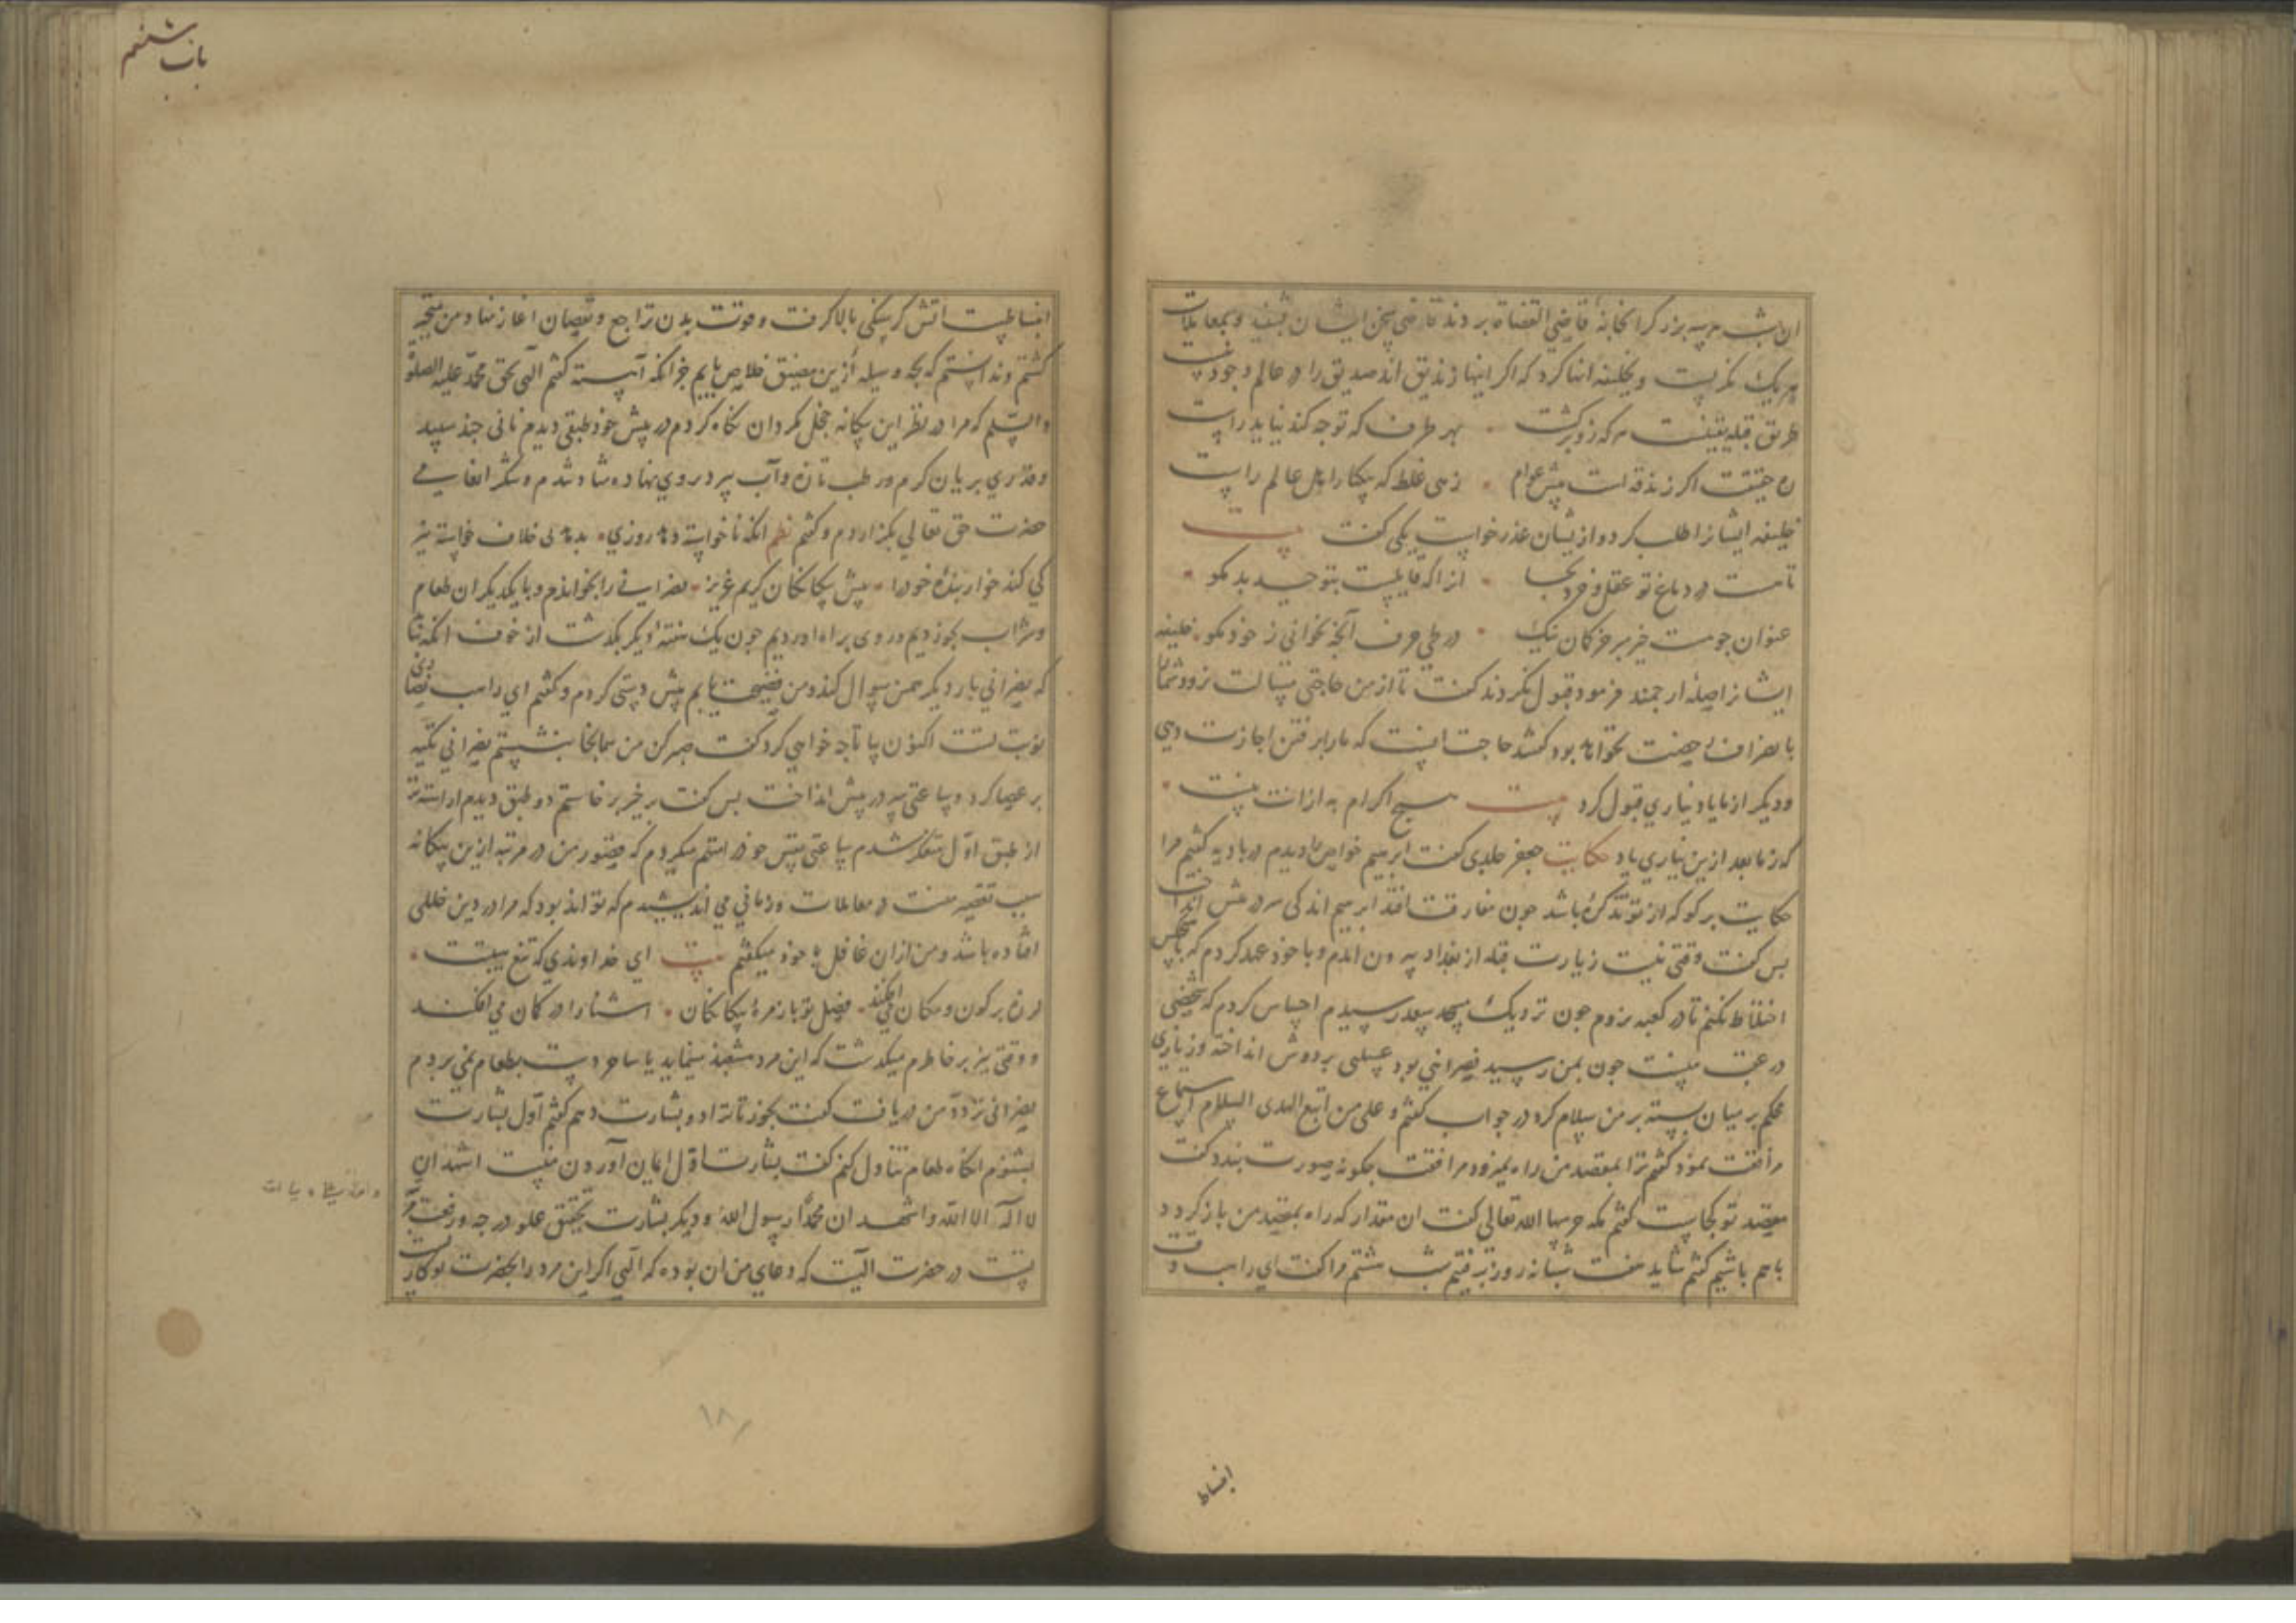 ان شب هر سه بزرگ را بخانهٔ قاضی القضاة بردند قاضی سخن ایشان بشنید و بمعاملات
هر یک نگریست و بخلیفه انها کرد که اگر اینها زندیق اند صدیق را در عالم وجود نیست
طریق قبله یقینست هر که زو برگشت بهر طرف که توجه کند نیاید راست
ره حقیقت اگر زندقه است پیش عوام زهی غلط که یکتا را اهل عالم راست
خلیفه ایشانرا طلب کرد و از یشان عذر خواست یکی گفت بیت
تا هست در دماغ تو عقل و خرد بجا از انکه قابلیست بتوحید بد مگو
عنوان چو هست خیر بر خیر کمان نیک در طی حرف آنچه نخوانی ز خود مگو خلیفه
ایشانرا صلهٔ ارجمند فرمود قبول نکردند گفت تا از من حاجتی مسالت نرود شما را
با نصراف رخصت نخواهد بود گفتند حاجت اینست که ما را برفتن اجازت دهی
و دیگر از ما یاد نیاری قبول کرد بیت هیچ اکرام به از انت نیست
که ز ما بعد ازین نیاری یاد حکایت جعفر خلدی گفت ابرهیم خواص را دیدم در بادیه گفتم مرا
حکایت بر گو که از تو تذکره باشد چون مفارقت افتد ابرهیم اندکی سر در پیش انداخت
بس گفت وقتی نیت زیارت قبله از بغداد بیرون امدم و با خود عهد کردم که با هیچکس
اختلاط نکنم تا در کعبه نروم چون نزدیک مسجد سعد رسیدم احساس کردم که شخصی
در عقب منست چون بمن رسید نصرانیی بود عسلی بر دوش انداخته و زناری
محکم بر میان بسته بر من سلام کرد در جواب گفتم و علی من اتبع الهدی السلام استماع
مرافقت نمود گفتم ترا بمقصد من راه نمیرود مرافقت چگونه صورت بندد گفت
مقصد تو کجاست گفتم مکه حرسها الله تعالی گفت ان مقدار که راه بمقصد من باز گردد
با هم باشیم گفتم شاید هفت شبانه روز برفتیم شب هشتم مرا گفت ای راهب وقت
انبساط
باب ششم
انبساطست اتش گرسنگی بالا گرفت و قوت بدن تراجع و نقصان اغاز نهاد و من متحیر
گشتم و ندانستم که بچه وسیله ازین مضیق خلاص یابم جز انکه آهسته گفتم الهی بحق محمد علیه الصلوة
و السلم که مرا در نظر این بیکانه خجل مگردان نگاه کردم در پیش خود طبقی دیدم نانی چند سپید
و قدری بریان گرم و رطب تازه و آب سرد در وی نهاده شاد شدم و شکر انفاسی
حضرت حق تعالی بگزاردم و گفتم نظم انکه ناخواسته دهد روزی بدهد لی خلاف خواسته نیز
کی کند خوار بندهٔ خود را پیش بیکانکان کریم عزیز نصرانی را بخواندم و با یکدیگر ان طعام
و شراب بخوردیم و روی براه اوردیم چون یک هفتهٔ دیگر بگذشت از خوف انکه نباید
که نصرانی بار دیگر همین سوال کند و من فضیحت یابم پیش دستی کردم و گفتم ای راهب نصاری
نوبت تست اکنون بیا تا چه خواهی کرد گفت صبر کن من همانجا بنشستم نصرانی تکیه
بر عصا کرد و ساعتی سر در پیش انداخت بس گفت برخیز برخاستم دو طبق دیدم اراسته تر
از طبق اول متفکر شدم ساعتی نفس خود را متهم میکردم که قصور من در مرتبه ازین بیکانه
سبب تقصیر منست در معاملات و زمانی می اندیشیدم که تواند بود که مرا در دین خللی
افتاده باشد و من ازان غافل با خود میگفتم بیت ای خداوندی که تیغ هیبتت
لرزه بر کون و مکان می افکند فضل تو باز مرهٔ بیکانکان اشنا را در کمان می افکند
و وقتی نیز بر خاطرم میگذشت که این مرد مشعبذ مینماید یا ساحر دست بطعام نمی بردم
نصرانی تردد من دریافت گفت بخور تا ترا دو بشارت دهم گفتم اول بشارت
بشنوم انگاه طعام تناول کنم گفت بشارت اول ایمان آوردن منست اشهد ان
لا اله الا الله و اشهد ان محمدا رسول الله و دیگر بشارت تحقیق علو درجه و رفعت
تست در حضرت الهیت که دعای من ان بوده که الهی اگر این مرد را بحضرت تو
۱۸